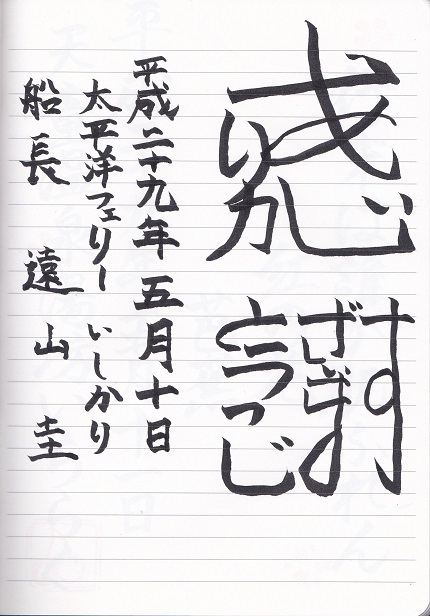 感謝
平成二十九年五月十日
太平洋フェリー いしかり
船長 遠山圭